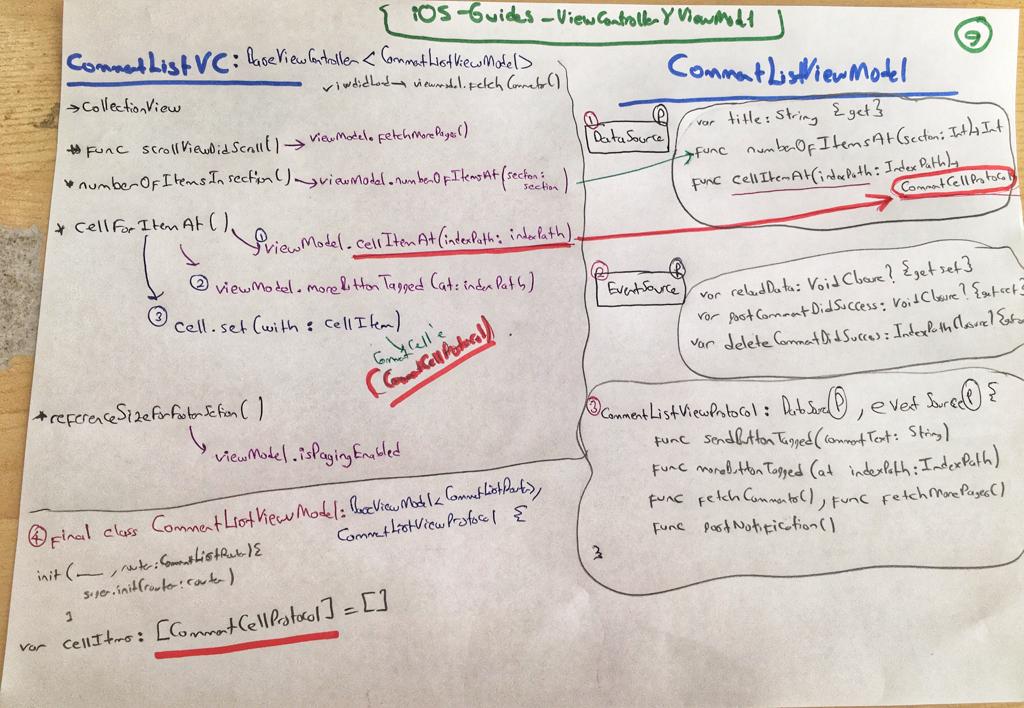 iOS-Guides-ViewController Y ViewModel
9
CommentListVC: BaseViewController<CommentListViewModel>
viewdidload → viewmodel.fetchComments()
→ CollectionView
* func scrollViewDidScroll() → viewModel.fetchMorePages()
* numberOfItemsInsection() → viewModel.numberOfItemsAt(section: section)
* cellForItemAt()
① viewModel.cellItemAt(indexPath: indexPath)
② viewModel.moreButtonTapped(at: indexPath)
③ cell.set(with: cellItem)
CommentCell'e
(CommentCellProtocol)
* referenceSizeForFooterSection()
viewModel.isPagingEnabled
④ final class CommentListViewModel: BaseViewModel<CommentListRouter>,
CommentListViewProtocol {
init(__, router: CommentListRouter){
super.init(router: router)
}
var cellItems: [CommentCellProtocol] = []
CommentListViewModel
① DataSource P
var title: String {get}
func numberOfItemsAt(section: Int)→Int
func cellItemAt(indexPath: IndexPath)→
CommentCellProtocol
② EventSource P
var reloadData: VoidClosure? {get set}
var postCommentDidSuccess: VoidClosure? {get set}
var deleteCommentDidSuccess: IndexPathClosure? {get set}
③ CommentListViewProtocol: DataSource P, eventSource P {
func sendButtonTapped(commentText: String)
func moreButtonTapped(at indexPath: IndexPath)
func fetchComments(), func fetchMorePages()
func postNotification()
}